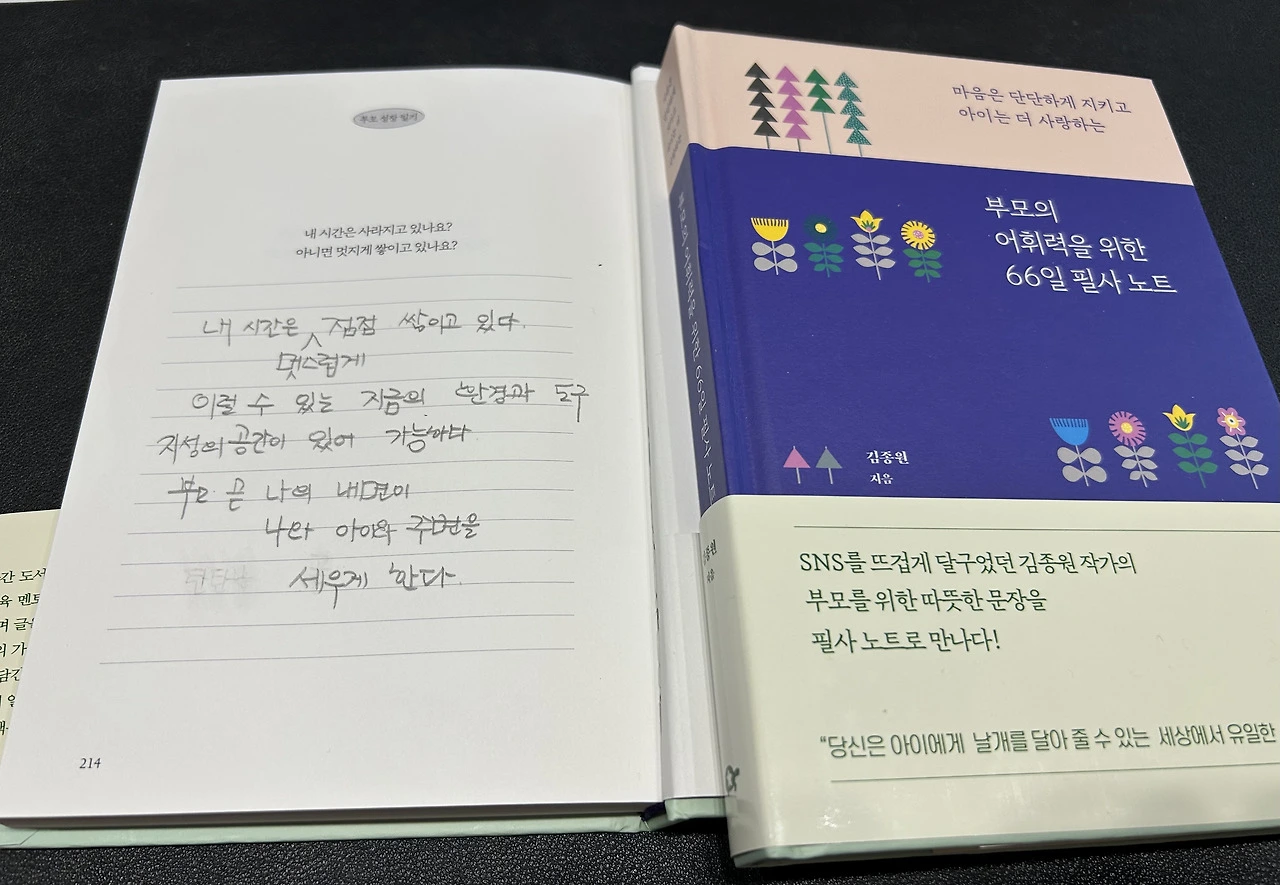 부모 성장 일기
내 시간은 사라지고 있나요?
아니면 멋지게 쌓이고 있나요?
내 시간은 점점 쌓이고 있다.
멋스럽게
이럴 수 있는 지금의 환경과 도구
지성의 공간이 있어 가능하다
부모 곧 나의 내면이
나와 아이의 주변을
세우게 한다.
214
간 도서
육 멘토
며 글을
의 가
담긴
마음은 단단하게 지키고
아이는 더 사랑하는
부모의
어휘력을 위한
66일 필사 노트
김종원
지음
SNS를 뜨겁게 달구었던 김종원 작가의
부모를 위한 따뜻한 문장을
필사 노트로 만나다!
“당신은 아이에게 날개를 달아 줄 수 있는 세상에서 유일한
부모의 어휘력을 위한 66일 필사 노트
김종원